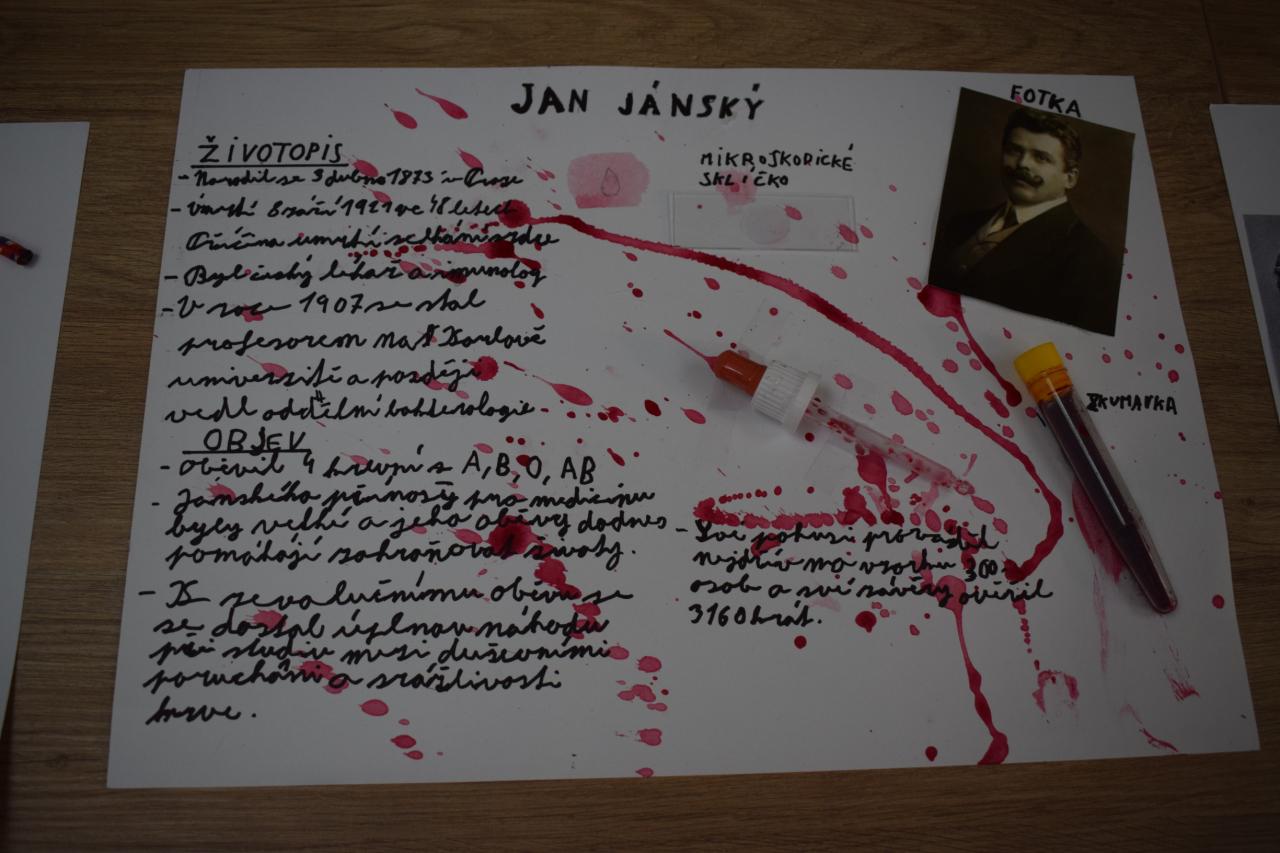 JAN JÁNSKÝ
ŽIVOTOPIS
- Narodil se 3 dubna 1873 v Praze
- Umrtí 8 září 1921 ve 48 letech
Příčina umrtí selhání srdce
- Byl český lékař a imunolog
- V roce 1907 se stal
profesorem na Karlově
univerzitě a později
vedl oddělní bakterologie
OBJEV
- Oběvil 4 krevní s A, B, O, AB
- Jánského přínosy pro medicínu
byly velké a jeho oběvy dodnes
pomáhají zahraňovat životy.
- K revolučnímu oběvu se
se dostal úplnou náhodu
při studiu mezi duševními
poruchámi a srážlivosti
krve.
MIKROSKOPICKÉ
SKLÍČKO
FOTKA
ZKUMAVKA
- Své pokusi prováděl
nejdřív na vzorku 300
osob a své závěry ověřil
3160 krát.